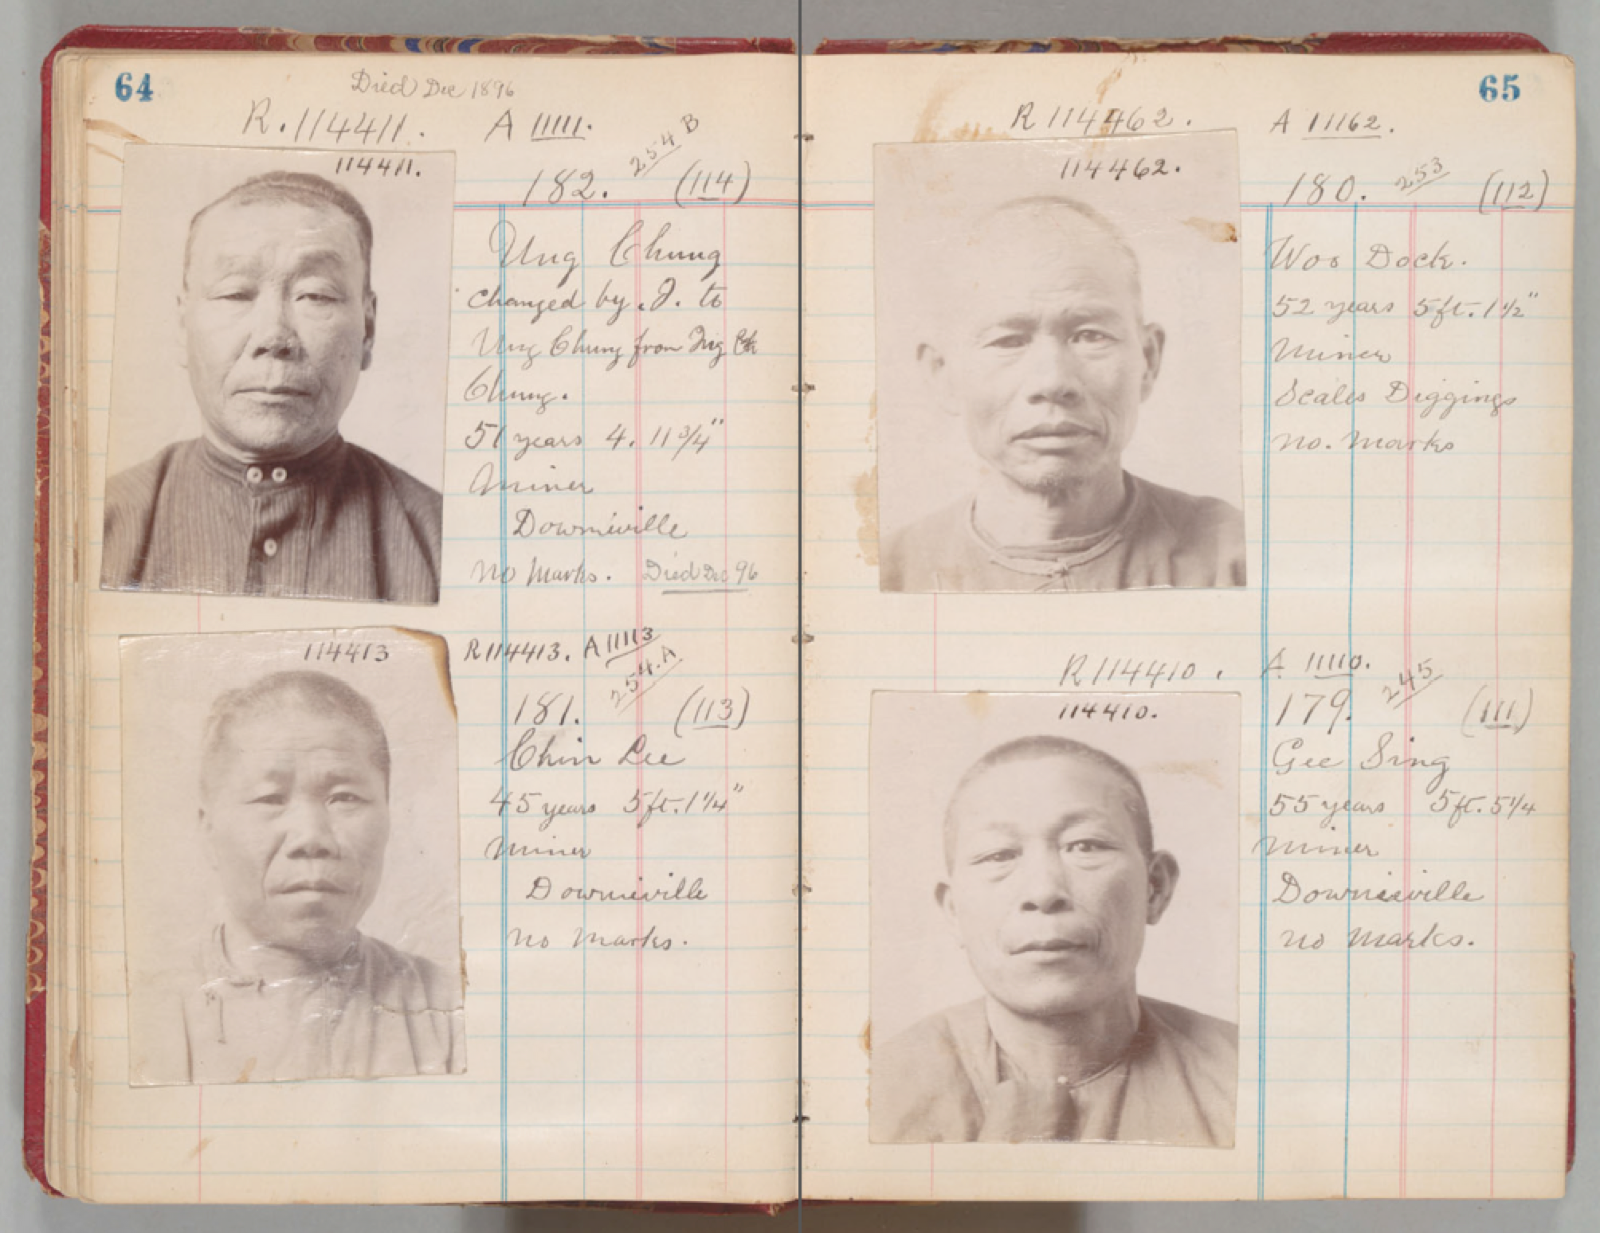 64
Died Dec 1896
R. 114411. A 11111.
114411.
182. 254 B (114)
Ung Chung
changed by. J. to
Ung Chung from Ing
Chung.
51 years 4. 11 3/4"
Miner
Downieville
No Marks. Died Dec 96
114413
R 114413. A 11113
181. 254.A (113)
Chin Lee
45 years 5 ft. 1 1/4"
Miner
Downieville
No Marks.
65
R 114462. A 11162.
114462.
180. 253 (112)
Woo Dock.
52 years 5 ft. 1 1/2"
Miner
Scales Diggings
no. Marks
R 114410. A 11110.
114410.
179. 245 (111)
Gee Sing
55 years 5 ft. 5 1/4
Miner
Downieville
no Marks.